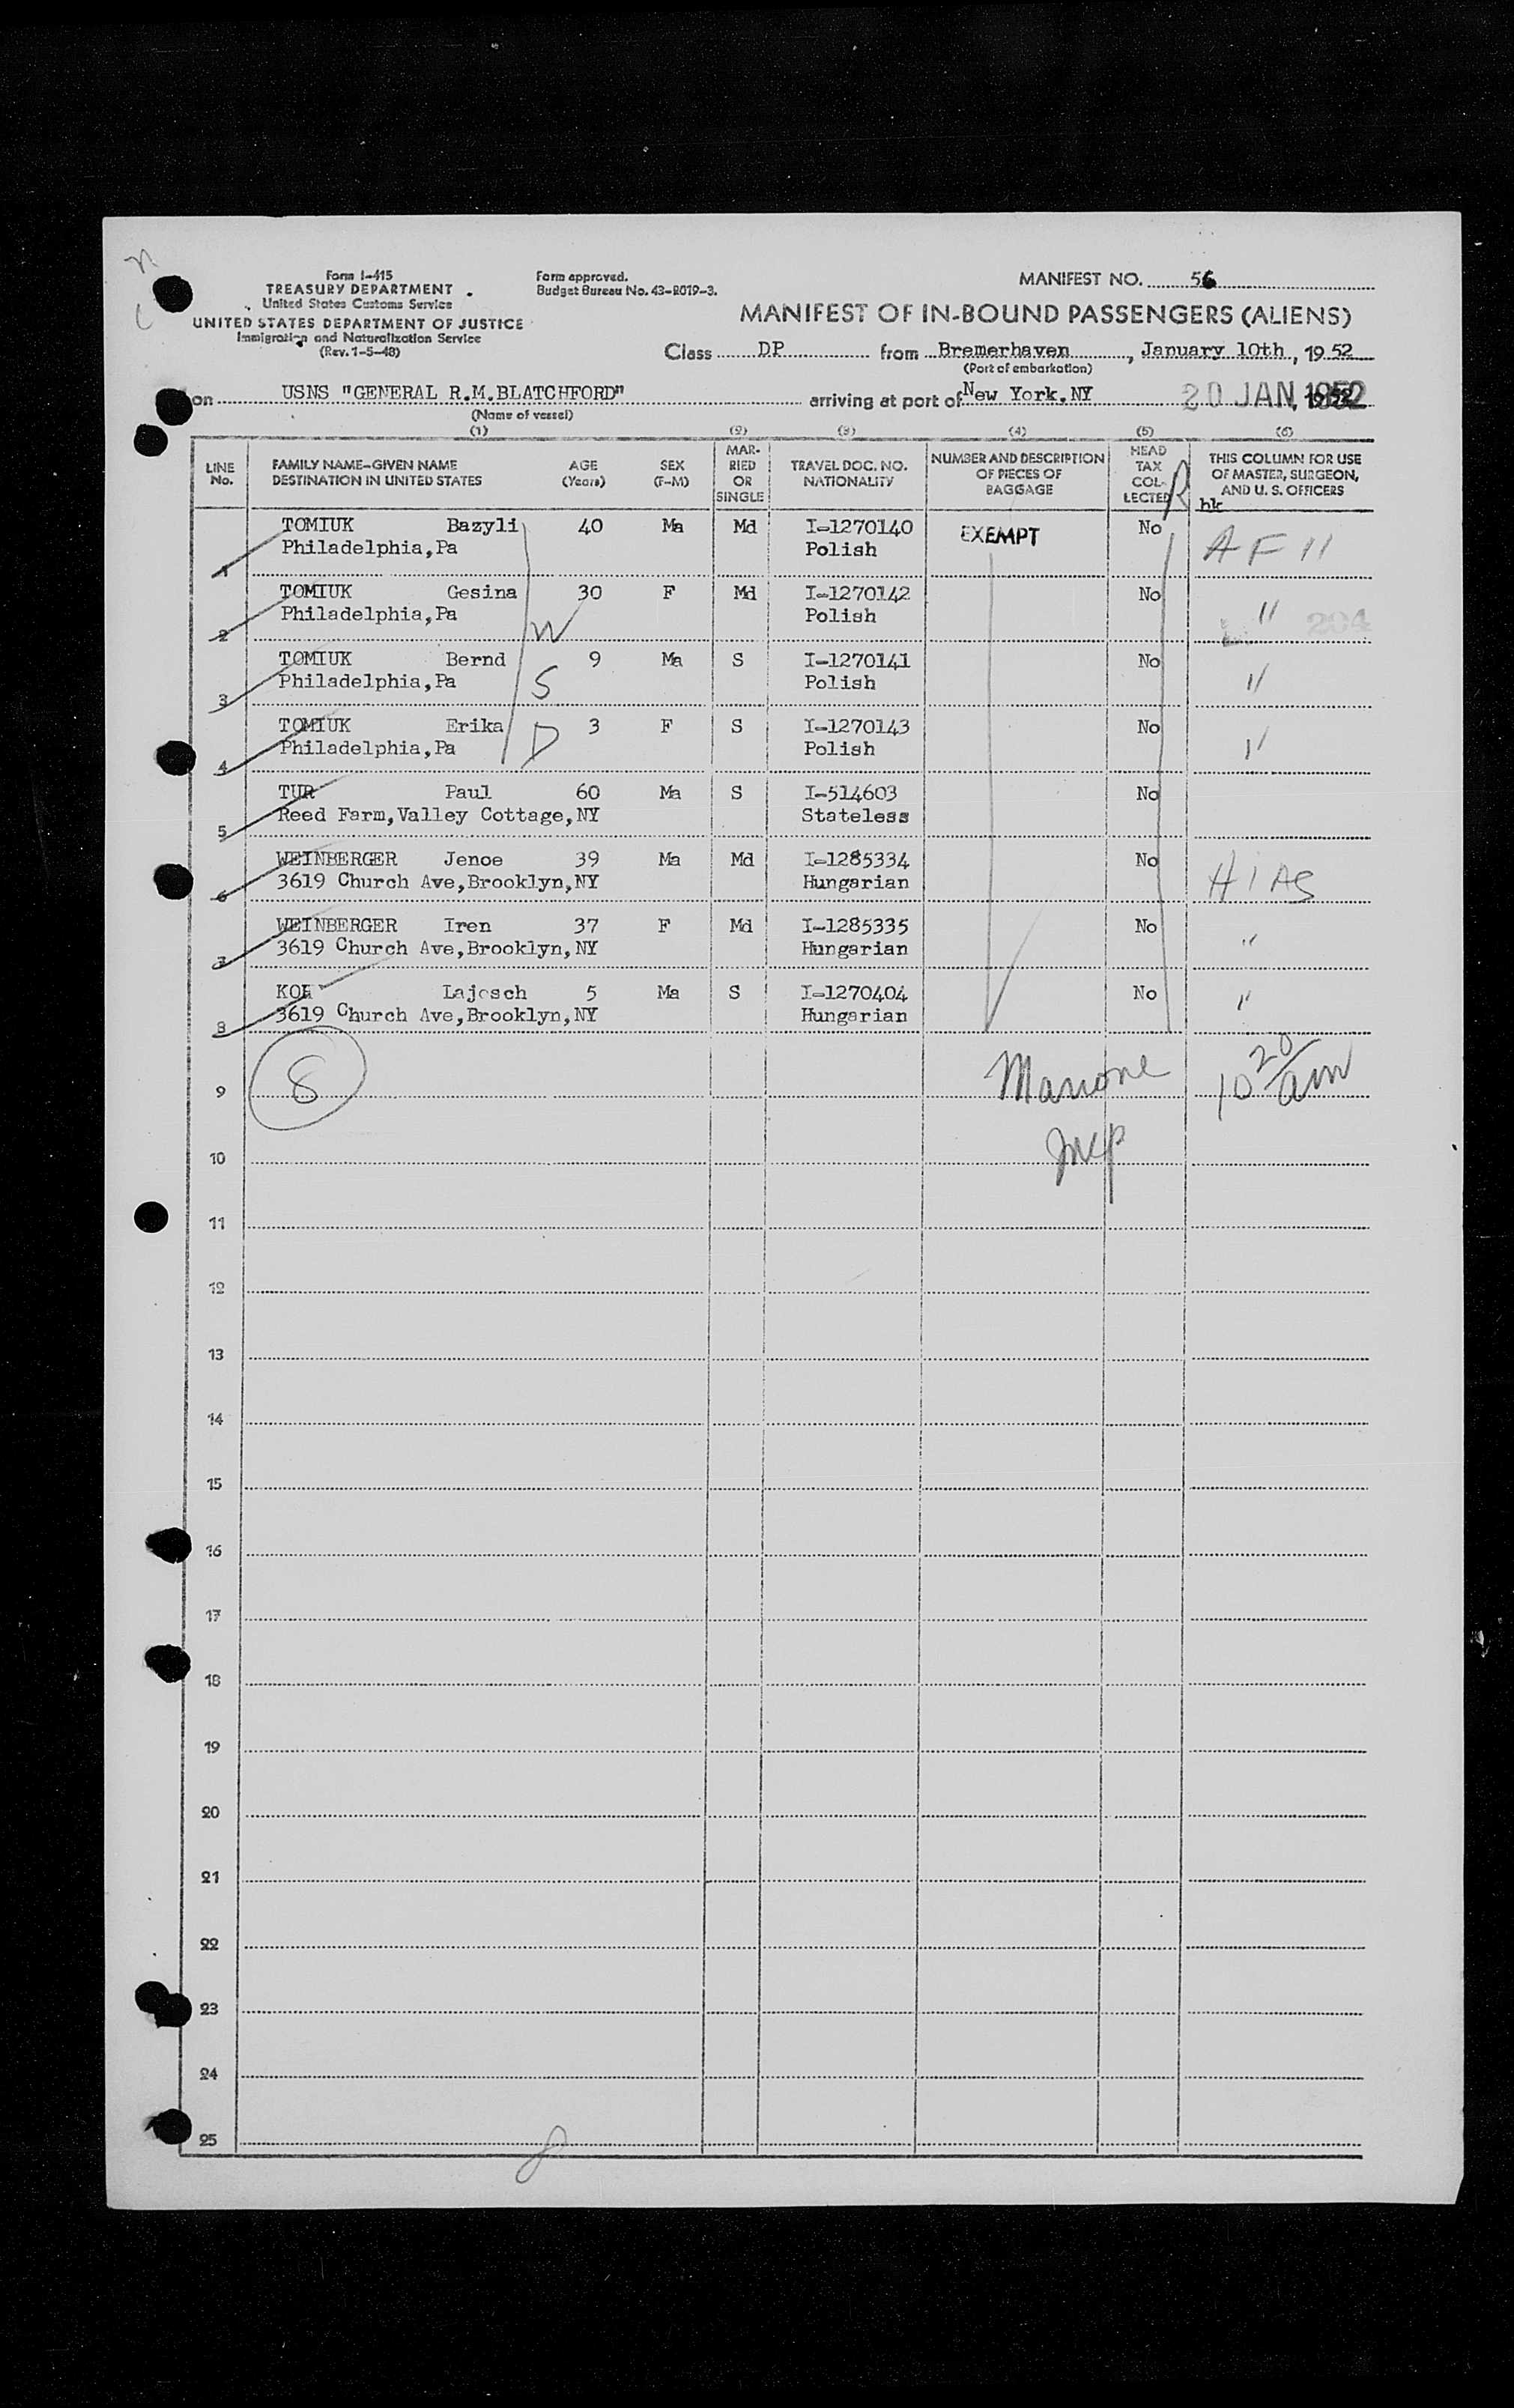 Form I-415
TREASURY DEPARTMENT
United States Customs Service
UNITED STATES DEPARTMENT OF JUSTICE
Immigration and Naturalization Service
(Rev. 1-5-48)
Form approved.
Budget Bureau No. 43-R019-3.
MANIFEST NO. 56
MANIFEST OF IN-BOUND PASSENGERS (ALIENS)
Class DP from Bremerhaven, January 10th, 1952
(Port of embarkation)
on USNS "GENERAL R.M.BLATCHFORD" arriving at port of New York, NY 20 JAN 1952
(Name of vessel)
(1) (2) (3) (4) (5) (6)
LINE No. FAMILY NAME-GIVEN NAME DESTINATION IN UNITED STATES AGE (Years) SEX (F-M) MARRIED OR SINGLE TRAVEL DOC. NO. NATIONALITY NUMBER AND DESCRIPTION OF PIECES OF BAGGAGE HEAD TAX COLLECTED THIS COLUMN FOR USE OF MASTER, SURGEON, AND U. S. OFFICERS
R hk
TOMIUK Bazyli 40 Ma Md I-1270140 EXEMPT No AF 11
1 Philadelphia,Pa Polish
TOMIUK Gesina 30 F Md I-1270142 No " 204
2 Philadelphia,Pa W Polish
TOMIUK Bernd 9 Ma S I-1270141 No "
3 Philadelphia,Pa S Polish
TOMIUK Erika 3 F S I-1270143 No "
4 Philadelphia,Pa D Polish
TUR Paul 60 Ma S I-514603 No
5 Reed Farm,Valley Cottage,NY Stateless
WEINBERGER Jenoe 39 Ma Md I-1285334 No HIAS
6 3619 Church Ave,Brooklyn,NY Hungarian
WEINBERGER Iren 37 F Md I-1285335 No "
7 3619 Church Ave,Brooklyn,NY Hungarian
Lajosch 5 Ma S I-1270404 No "
8 3619 Church Ave,Brooklyn,NY Hungarian
9 8 10 20/am
10
11
12
13
14
15
16
17
18
19
20
21
22
23
24
25
8